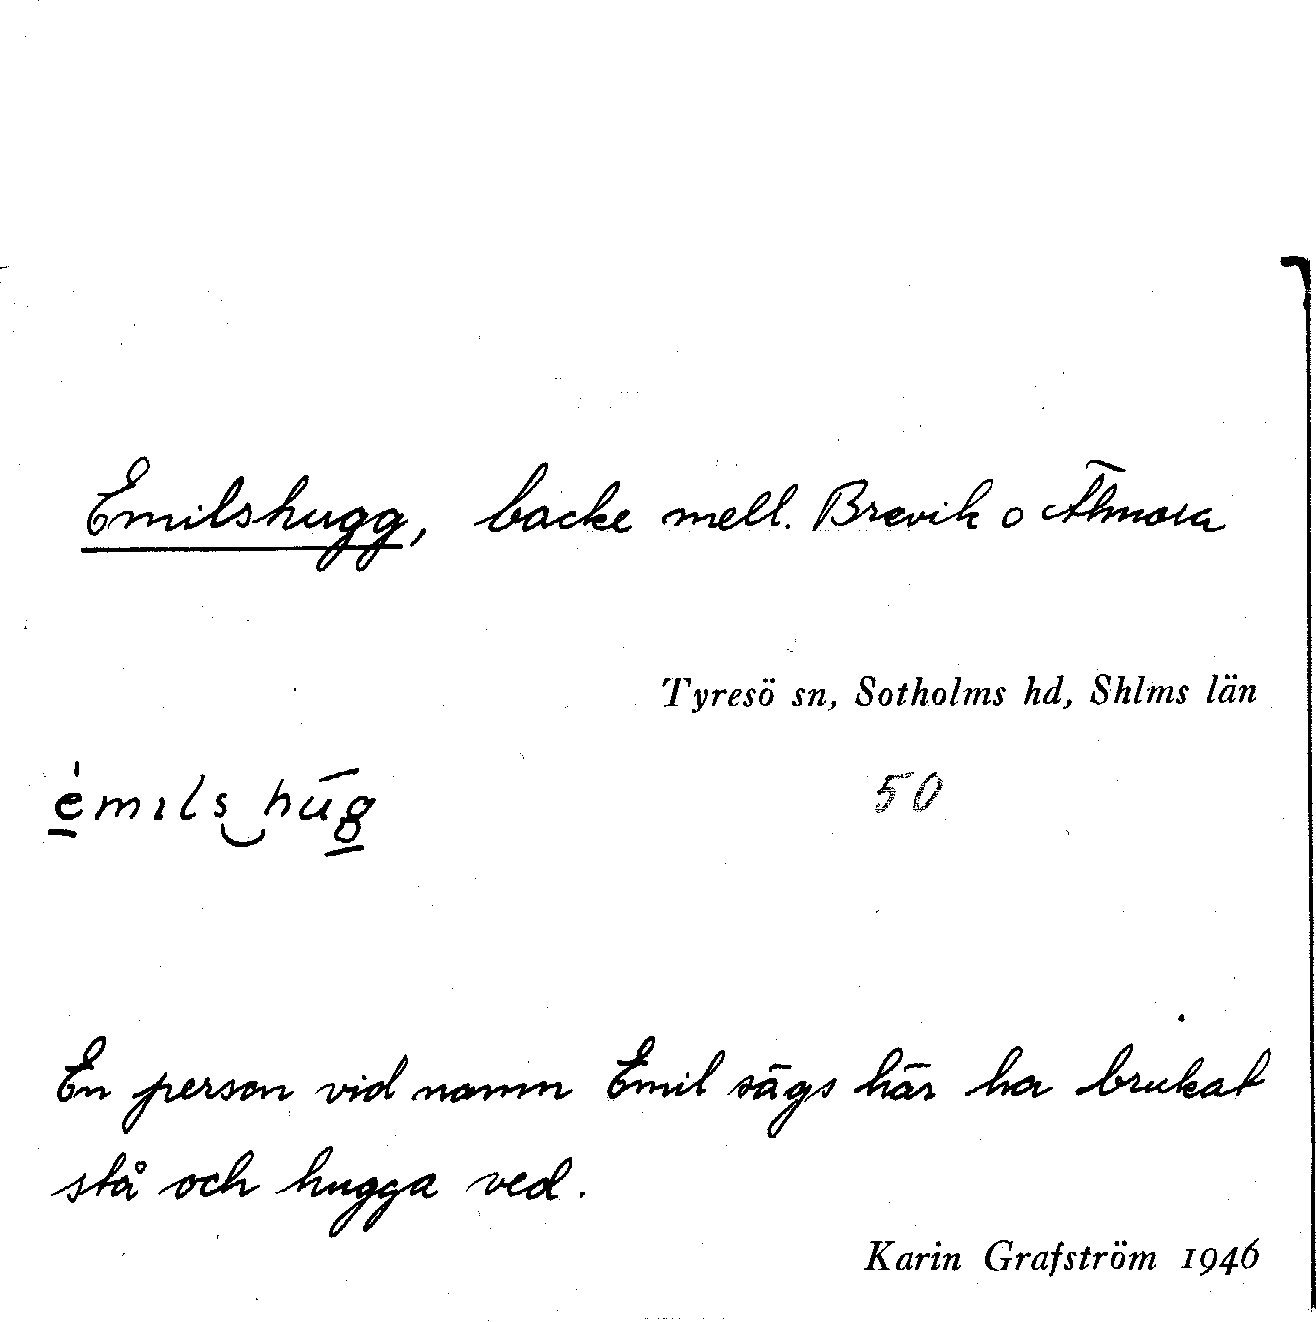 Emilshugg, backe mell. Brevik o Älmora
Tyresö sn, Sotholms hd, Shlms län
50
En person vid namn Emil sägs här ha brukat
stå och hugga ved.
Karin Grafström 1946